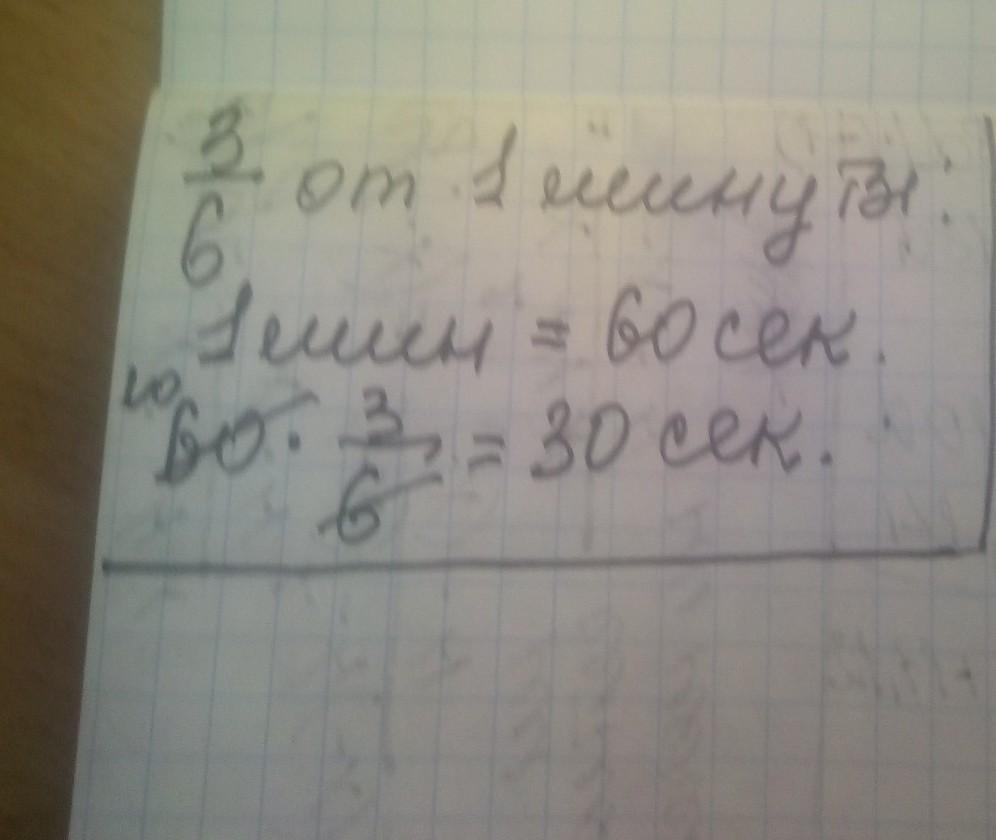 3/6 от 1 минуты:
1 мин = 60 сек.
10
60 · 3/6 = 30 сек.